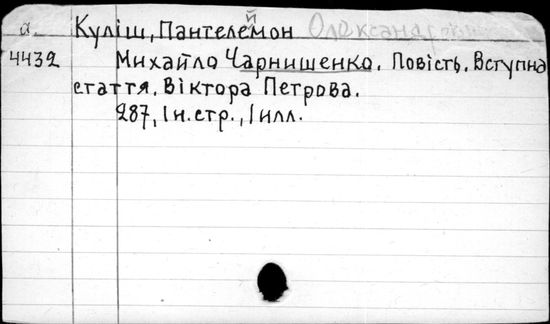 а. Куліш, Пантелеймон Олександрович
4432 Михайло Чарнишенко. Повість. Вступна
стаття. Віктора Петрова.
287, 1 н. стр., 1 илл.